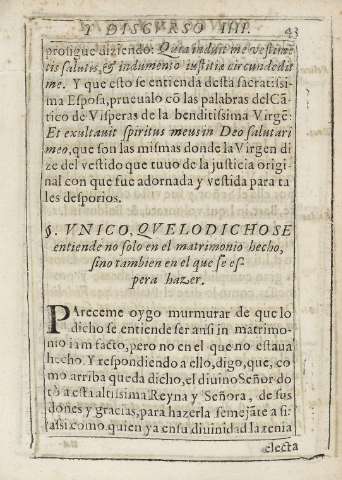 Y DISCVRSO IIII. 43
prosigue diziendo: Quia induit me vestime
tis salutis, & indumento iustitiæ circundedit
me. Y que esto se entienda desta sacratissi
ma Esposa, prueualo cõ las palabras del Cã
tico de Visperas de la benditissima Virgẽ:
Et exultauit spiritus meus in Deo salutari
meo, que son las mismas donde la Virgen di
ze del vestido que tuuo de la justicia origi
nal con que fue adornada y vestida para ta
les desposorios.
§. VNICO, QVE LO DICHO SE
entiende no solo en el matrimonio hecho,
sino tambien en el que se es-
pera hazer.
PAreceme oygo murmurar de que lo
dicho se entiende ser ansi in matrimo-
nio iam facto, pero no en el que no estaua
hecho. Y respondiendo a ello, digo, que, co
mo arriba queda dicho, el diuino Señor do
tò a esta altissima Reyna y Señora, de sus
dones y gracias, para hazerla semejãte a si:
assi como quien ya en su diuinidad la tenia
electa